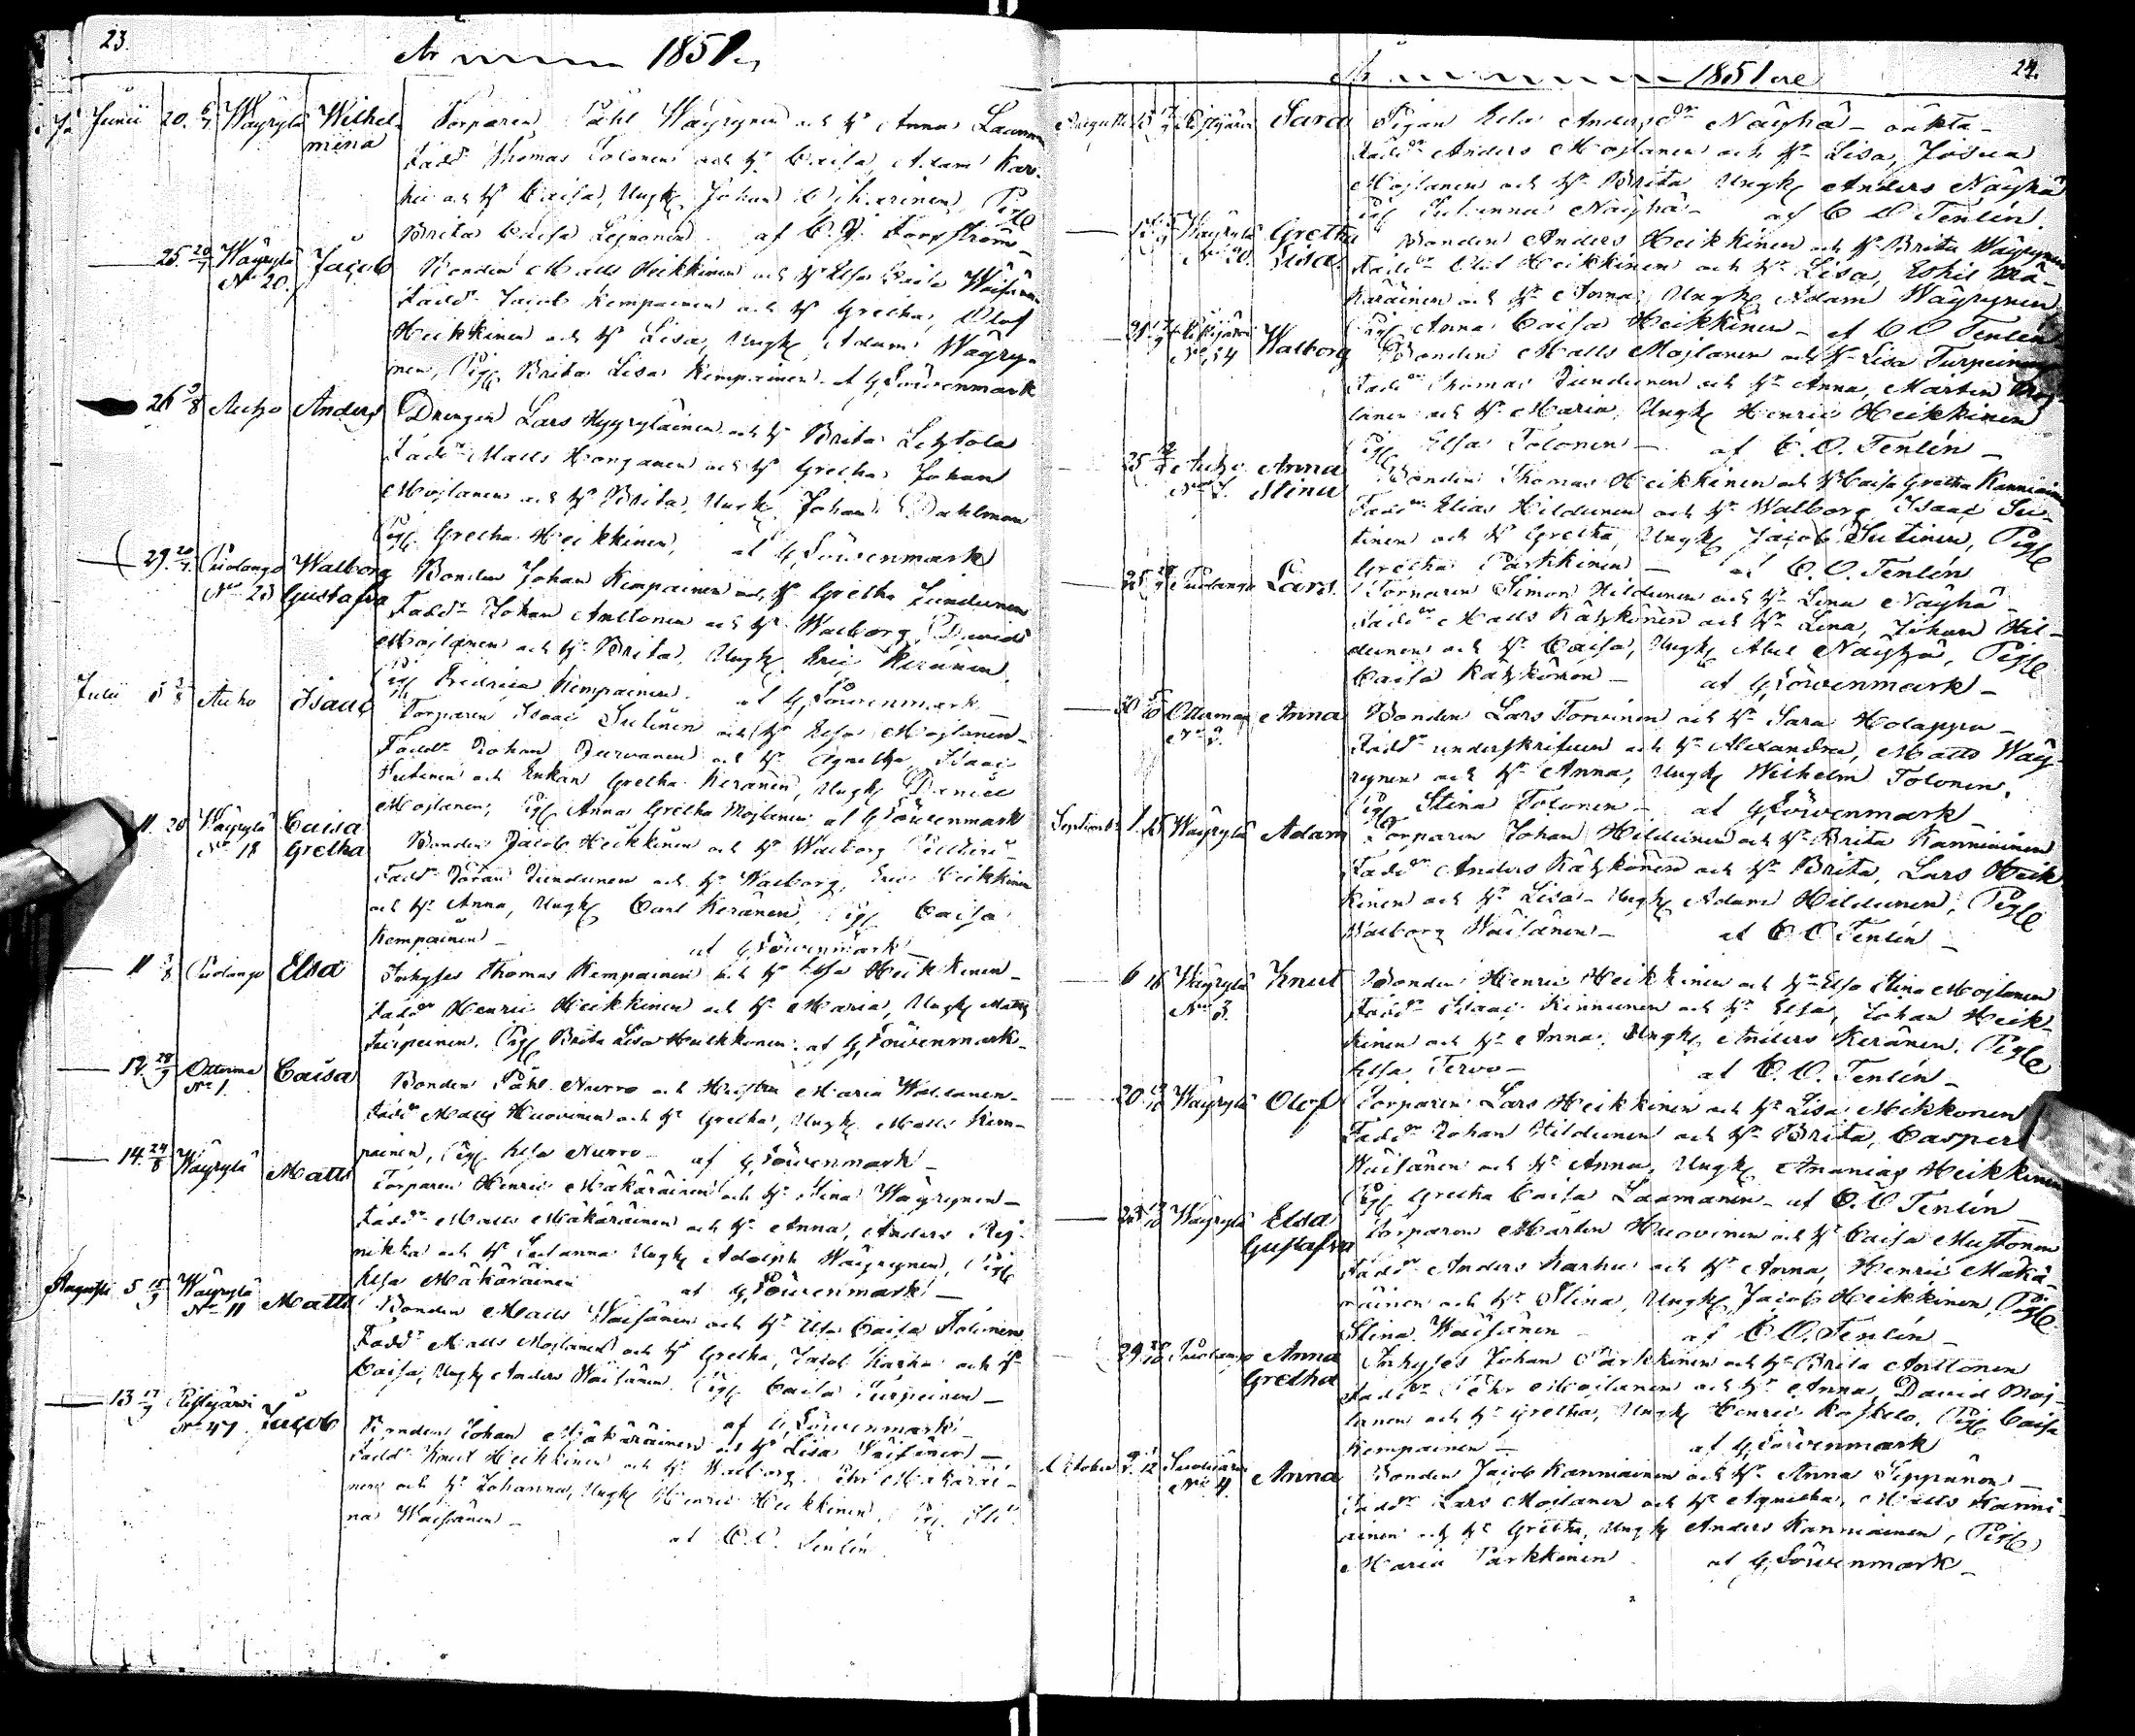 23.
År 1851
Junii 20. 6/7 Wäyrylä Wilhelmina Torparen Påhl Wäyrynen och h. Anna
Fadd. Thomas Tolonen och h. Caisa, Adam Kar-
hu och h. Caisa, Ungk. Johan Pig.
Brita Caisa af C. J. Torpström
25. 20/7 Wäyrylä No 20. Jacob Bonden Matts Heikkinen och h. Elsa Caisa Wäisänen
Fadd. Jacob Kempainen och h. Gretha, Olof
Heikkinen och h. Lisa, Ungk. Adam Wäyry-
nen, Pig. Brita Lisa Kempainen. af G. Löwenmark
26 3/8 Auho Anders Drengen Lars Hyyryläinen och h. Brita Lehtola
Fadd. Matts Horganen och h. Gretha, Johan
Mojlanen och h. Brita, Ungk. Johan Dahlman
Pig. Gretha Heikkinen, af G. Löwenmark
29. 20/7 Puolango No 23 Walborg Gustafva Bonden Johan Kempainen och h. Gretha Juntunen
Fadd. Johan Anttonen och h. Walborg, David
Mojlanen och h. Brita, Ungk. Eric Keränen,
Pig. Fredrica Kempainen. af G. Löwenmark
Julii 5 3/8 Auho Isaac Torparen Isaac Sutinen och h. Elsa Mojlanen
Fadd. Johan Durvanen och h. Agnetha, Isaac
Sutinen och Enkan Gretha Keränen, Ungk. Daniel
Mojlanen, Pig. Anna Gretha Mojlanen af G. Löwenmark
11. 20 Wäyrylä No 18 Caisa Gretha Bonden Jacob Heikkinen och h. Walborg
Fadd. Göran Juntunen och h. Walborg, Eric Heikkinen
och h. Anna, Ungk. Carl Keränen, Pig. Caisa
Kempainen af G. Löwenmark
11 3/8 Puolango Elsa Inhyses Thomas Kempainen och h. Elsa Heikkinen
Fadd. Henric Heikkinen och h. Maria, Ungk. Matts
Turpeinen, Pig. Brita Lisa Heikkonen. af G. Löwenmark
12. 28/9 Otterma No 1. Caisa Bonden Påhl Nurro och Hustru Maria
Fadd. Matts Huovinen och h. Gretha, Ungk. Matts Kem-
painen, Pig. Elsa Nurro af G. Löwenmark
14. 24/8 Wäyrylä Matts Torparen Henric Mäkäräinen och h. Stina Wäyrynen
Fadd. Matts Mäkäräinen och h. Anna, Anders Rej-
nikka och h. Susanna Ungk. Adolph Wäyrynen, Pig.
Elsa Mäkäräinen af G. Löwenmark
Augusti 5 15/9 Wäyrylä No 11 Matts Bonden Matts Wäisänen och h. Elsa Caisa
Fadd. Matts Mojlanen och h. Gretha, Jacob Karhu och h.
Caisa, Ungk. Anders Wäisänen. Pig. Caisa Turpeinen
af G. Löwenmark
13 17/9 Ristijärvi No 47 Jacob Bonden Johan Mäkäräinen och h. Lisa Wäisänen
Fadd. Knut Heikkinen och h. Walborg, Pehr Mäkäräi-
nen och h. Johanna, Ungk. Henric Heikkinen, Pig. Sti-
na Wäisänen af C. O. Tenlén
24.
År 1851
Augusti 15 17/9 Ristijärvi Sara Pigan Elsa Andersdr Näyhä - oäkta -
Fadd. Anders Mojlanen och h. Lisa, Josua
Mojlanen och h. Brita Ungk. Anders Näyhä
Pig. Susanna Näyhä af C. O. Tenlén.
Wäyrylä No 20. Gretha Lisa Bonden Anders Heikkinen och h. Brita Wäyrynen
Fadd. Olof Heikkinen och h. Lisa, Eskil Mä-
käräinen och h. Anna, Ungk. Adam Wäyrynen
Pig. Anna Caisa Heikkinen af C. O. Tenlén
21 17/9 Ristijärvi No 54 Walborg Bonden Matts Mojlanen och h. Lisa Turpeinen
Fadd. Thomas Juntunen och h. Anna, Martin Moj-
lanen och h. Maria, Ungk. Henric Heikkinen
Pig. Elsa Tolonen af C. O. Tenlén
25 Auho Anna Stina Bonden Thomas Heikkinen och h. Caisa Gretha Kanniainen
Fadd. Elias Hildunen och h. Walborg, Isaac Su-
tinen och h. Gretha, Ungk. Jacob Sutinen, Pig.
Gretha Parkkinen af C. O. Tenlén
25 Puolango Lars Torparen Simon Hildunen och h. Lena Näyhä
Fadd. Matts Kätzkönen och h. Lena, Johan Hil-
dunen och h. Caisa, Ungk. Abel Näyhä, Pig.
Caisa Kätzkönen af G. Löwenmark
30 Otterma Anna Bonden Lars Torvinen och h. Sara Holappa
Fadd. underskrifven och h. Alexandra, Matts Wäy-
rynen och h. Anna, Ungk. Wilhelm Tolonen,
Pig. Stina Tolonen af G. Löwenmark
Septemb. 1. 15 Wäyrylä Adam Torparen Johan Hildunen och h. Brita Kanniainen
Fadd. Anders Kätzkönen och h. Brita, Lars Heik-
kinen och h. Lisa, Ungk. Adam Hildunen, Pig.
Walborg Wäisänen af C. O. Tenlén
6 16 Wäyrylä No 3. Knut Bonden Henric Heikkinen och h. Elsa Stina Mojlanen
Fadd. Isaac Kinnunen och h. Elsa, Johan Heik-
kinen och h. Anna, Ungk. Anders Keränen, Pig.
Elsa Tervo af C. O. Tenlén
20 Wäyrylä Olof Torparen Lars Heikkinen och h. Lisa Mikkonen
Fadd. Johan Hildunen och h. Brita, Casper
Wäisänen och h. Anna, Ungk. Ananias Heikkinen
Pig. Gretha Caisa Laamanen af C. O. Tenlén
23 Wäyrylä Elsa Gustafva Torparen Mårten Huovinen och h. Caisa Mustonen
Fadd. Anders Karhu och h. Anna, Henric Mäkä-
räinen och h. Stina, Ungk. Jacob Heikkinen, Pig.
Stina Wäisänen af C. O. Tenlén
29 Puolango Anna Gretha Inhyses Johan Parkkinen och h. Brita Anttonen
Fadd. Pehr Mojlanen och h. Anna, David Moj-
lanen och h. Gretha, Ungk. Henric Koskelo, Pig. Caisa
Kempainen af G. Löwenmark
October Anna Bonden Jacob Kanniainen och h. Anna Seppänen
Fadd. Lars Mojlanen och h. Agnetha, Matts Kanni-
ainen och h. Gretha, Ungk. Anders Kanniainen, Pig.
Maria Parkkinen af G. Löwenmark